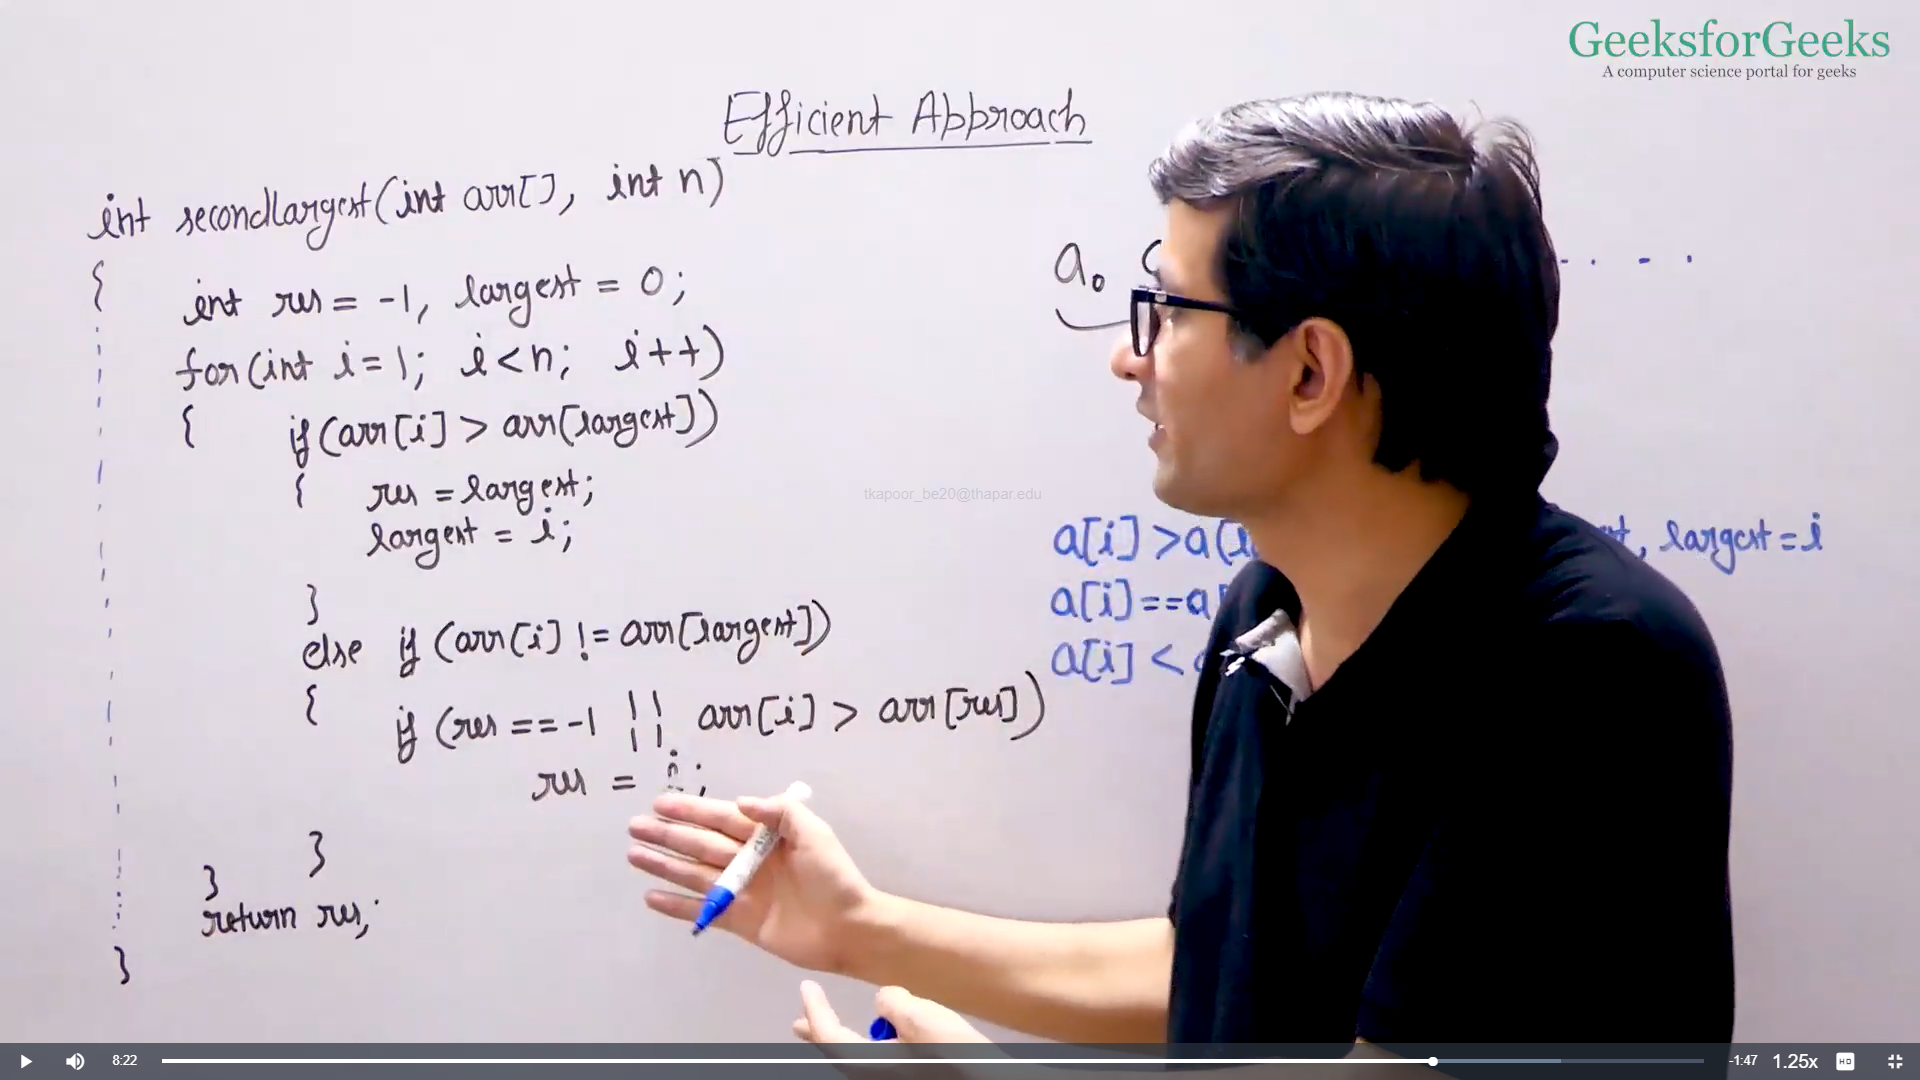 GeeksforGeeks
A computer science portal for geeks
Efficient Approach
int secondLargest(int arr[], int n)
{
int res = -1, largest = 0;
for(int i=1; i<n; i++)
{ if(arr[i] > arr[largest])
{ res = largest;
largest = i;
}
else if (arr[i] != arr[largest])
{
if (res == -1 || arr[i] > arr[res])
res = i;
}
}
return res;
}
a0
tkapoor_be20@thapar.edu
a[i] > a[ , largest = i
a[i] == a[
a[i] <
8:22
-1:47
1.25x
HD